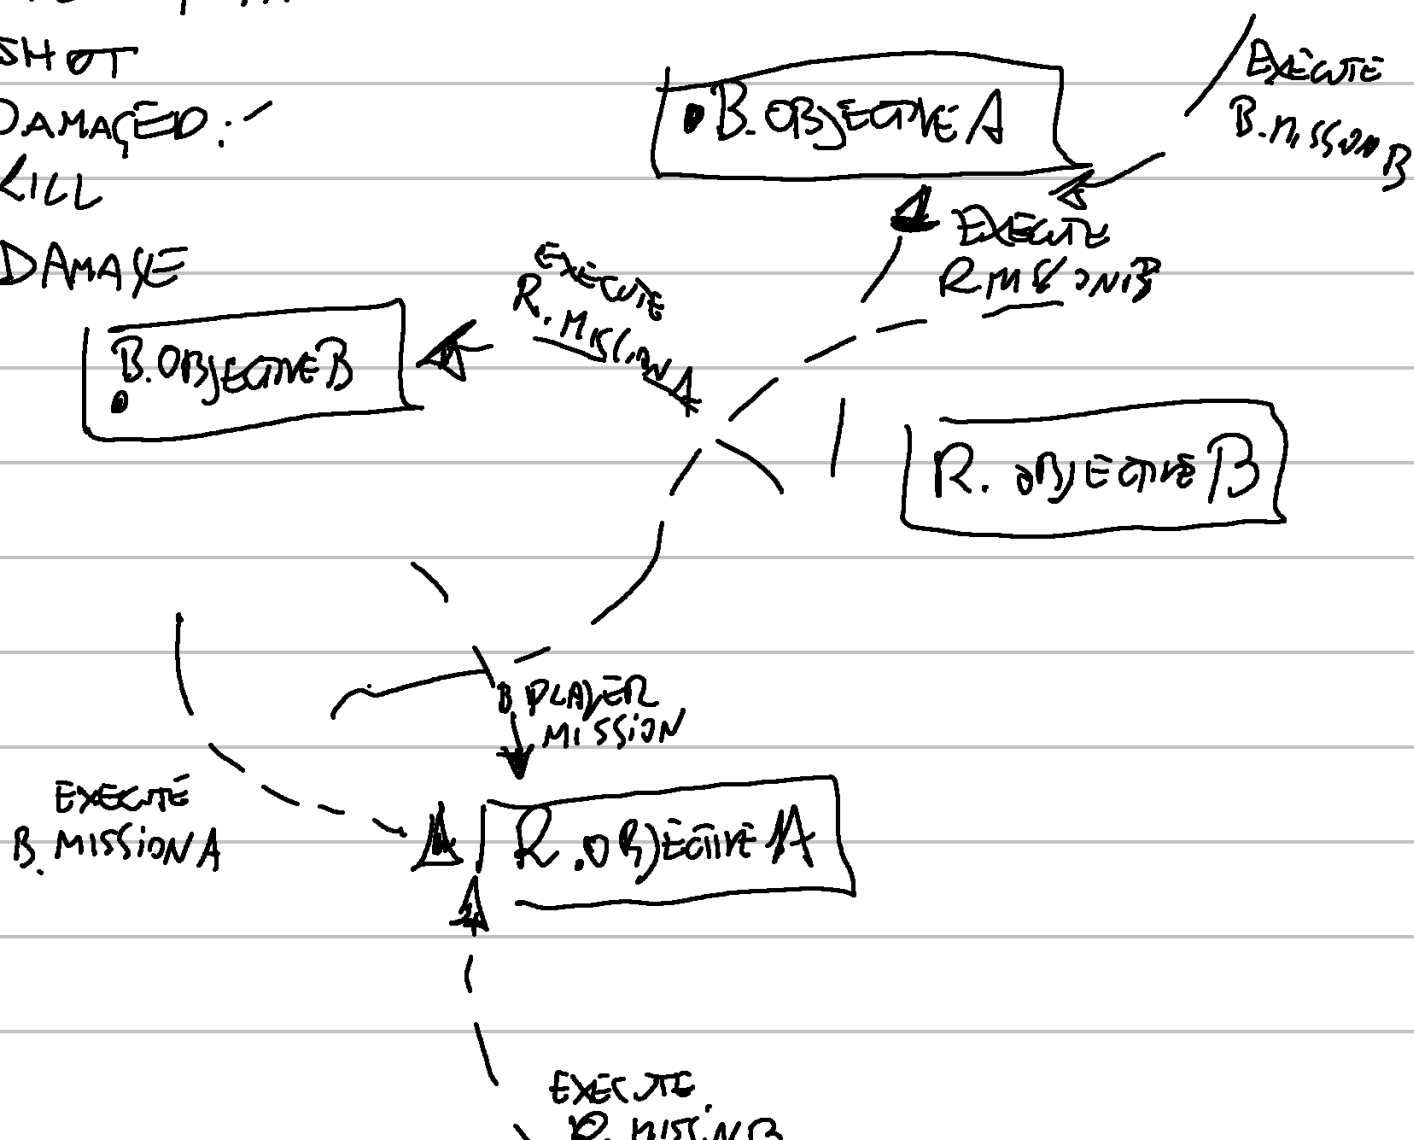 SHOT
DAMAGED:
KILL
DAMAGE
B.OBJECTIVE A
EXECUTE
B.MISSION B
EXECUTE
R.MISSION B
EXECUTE
R.MISSION A
B.OBJECTIVE B
R. OBJECTIVE B
B PLAYER
MISSION
EXECUTE
B. MISSION A
R.OBJECTIVE A
EXECUTE